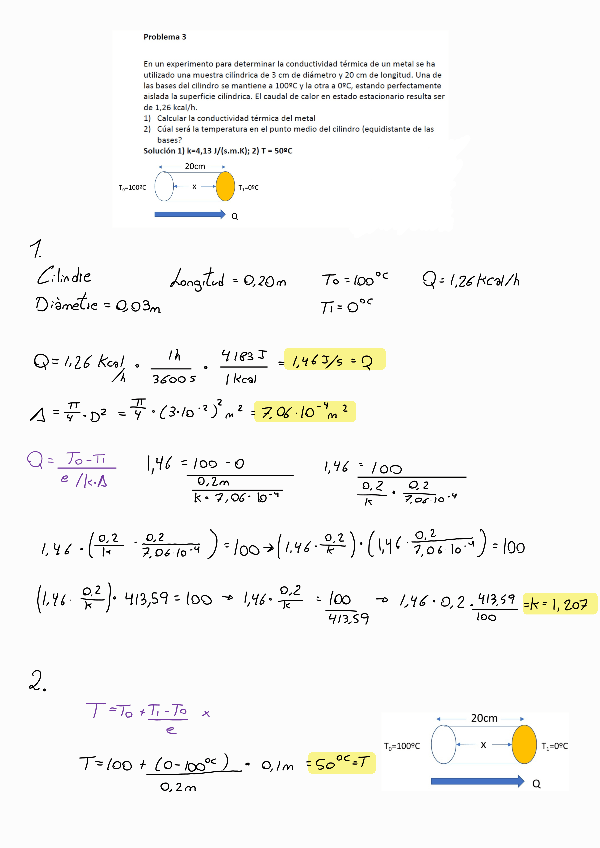 Problema 3
En un experimento para determinar la conductividad térmica de un metal se ha
utilizado una muestra cilíndrica de 3 cm de diámetro y 20 cm de longitud. Una de
las bases del cilindro se mantiene a 100ºC y la otra a 0ºC, estando perfectamente
aislada la superficie cilíndrica. El caudal de calor en estado estacionario resulta ser
de 1,26 kcal/h.
1) Calcular la conductividad térmica del metal
2) Cúal será la temperatura en el punto medio del cilindro (equidistante de las
bases?
Solución 1) k=4,13 J/(s.m.K); 2) T = 50ºC
20cm
T₀=100ºC x T₁=0ºC
Q
1.
Cilindre Longitud = 0,20m T₀ = 100ºC Q = 1,26 Kcal/h
Diàmetre = 0,03m T₁ = 0ºC
Q = 1,26 Kcal/h · 1h/3600s · 4183J/1kcal = 1,46 J/s = Q
A = π/4 · D² = π/4 · (3·10⁻²)² m² = 7,06·10⁻⁴ m²
Q = T₀-T₁ / e/k·A 1,46 = 100-0 / 0,2m / k · 7,06·10⁻⁴ 1,46 = 100 / 0,2/k · 0,2/7,06 10⁻⁴
1,46 · (0,2/k · 0,2/7,06 10⁻⁴) = 100 → (1,46 · 0,2/k) · (1,46 · 0,2/7,06 10⁻⁴) = 100
(1,46 · 0,2/k) · 413,59 = 100 → 1,46 · 0,2/k = 100/413,59 → 1,46 · 0,2 · 413,59/100 = k = 1,207
2.
T = T₀ + T₁-T₀/e x
T = 100 + (0-100ºC)/0,2m · 0,1m = 50ºC = T
20cm
T₀=100ºC x T₁=0ºC
Q